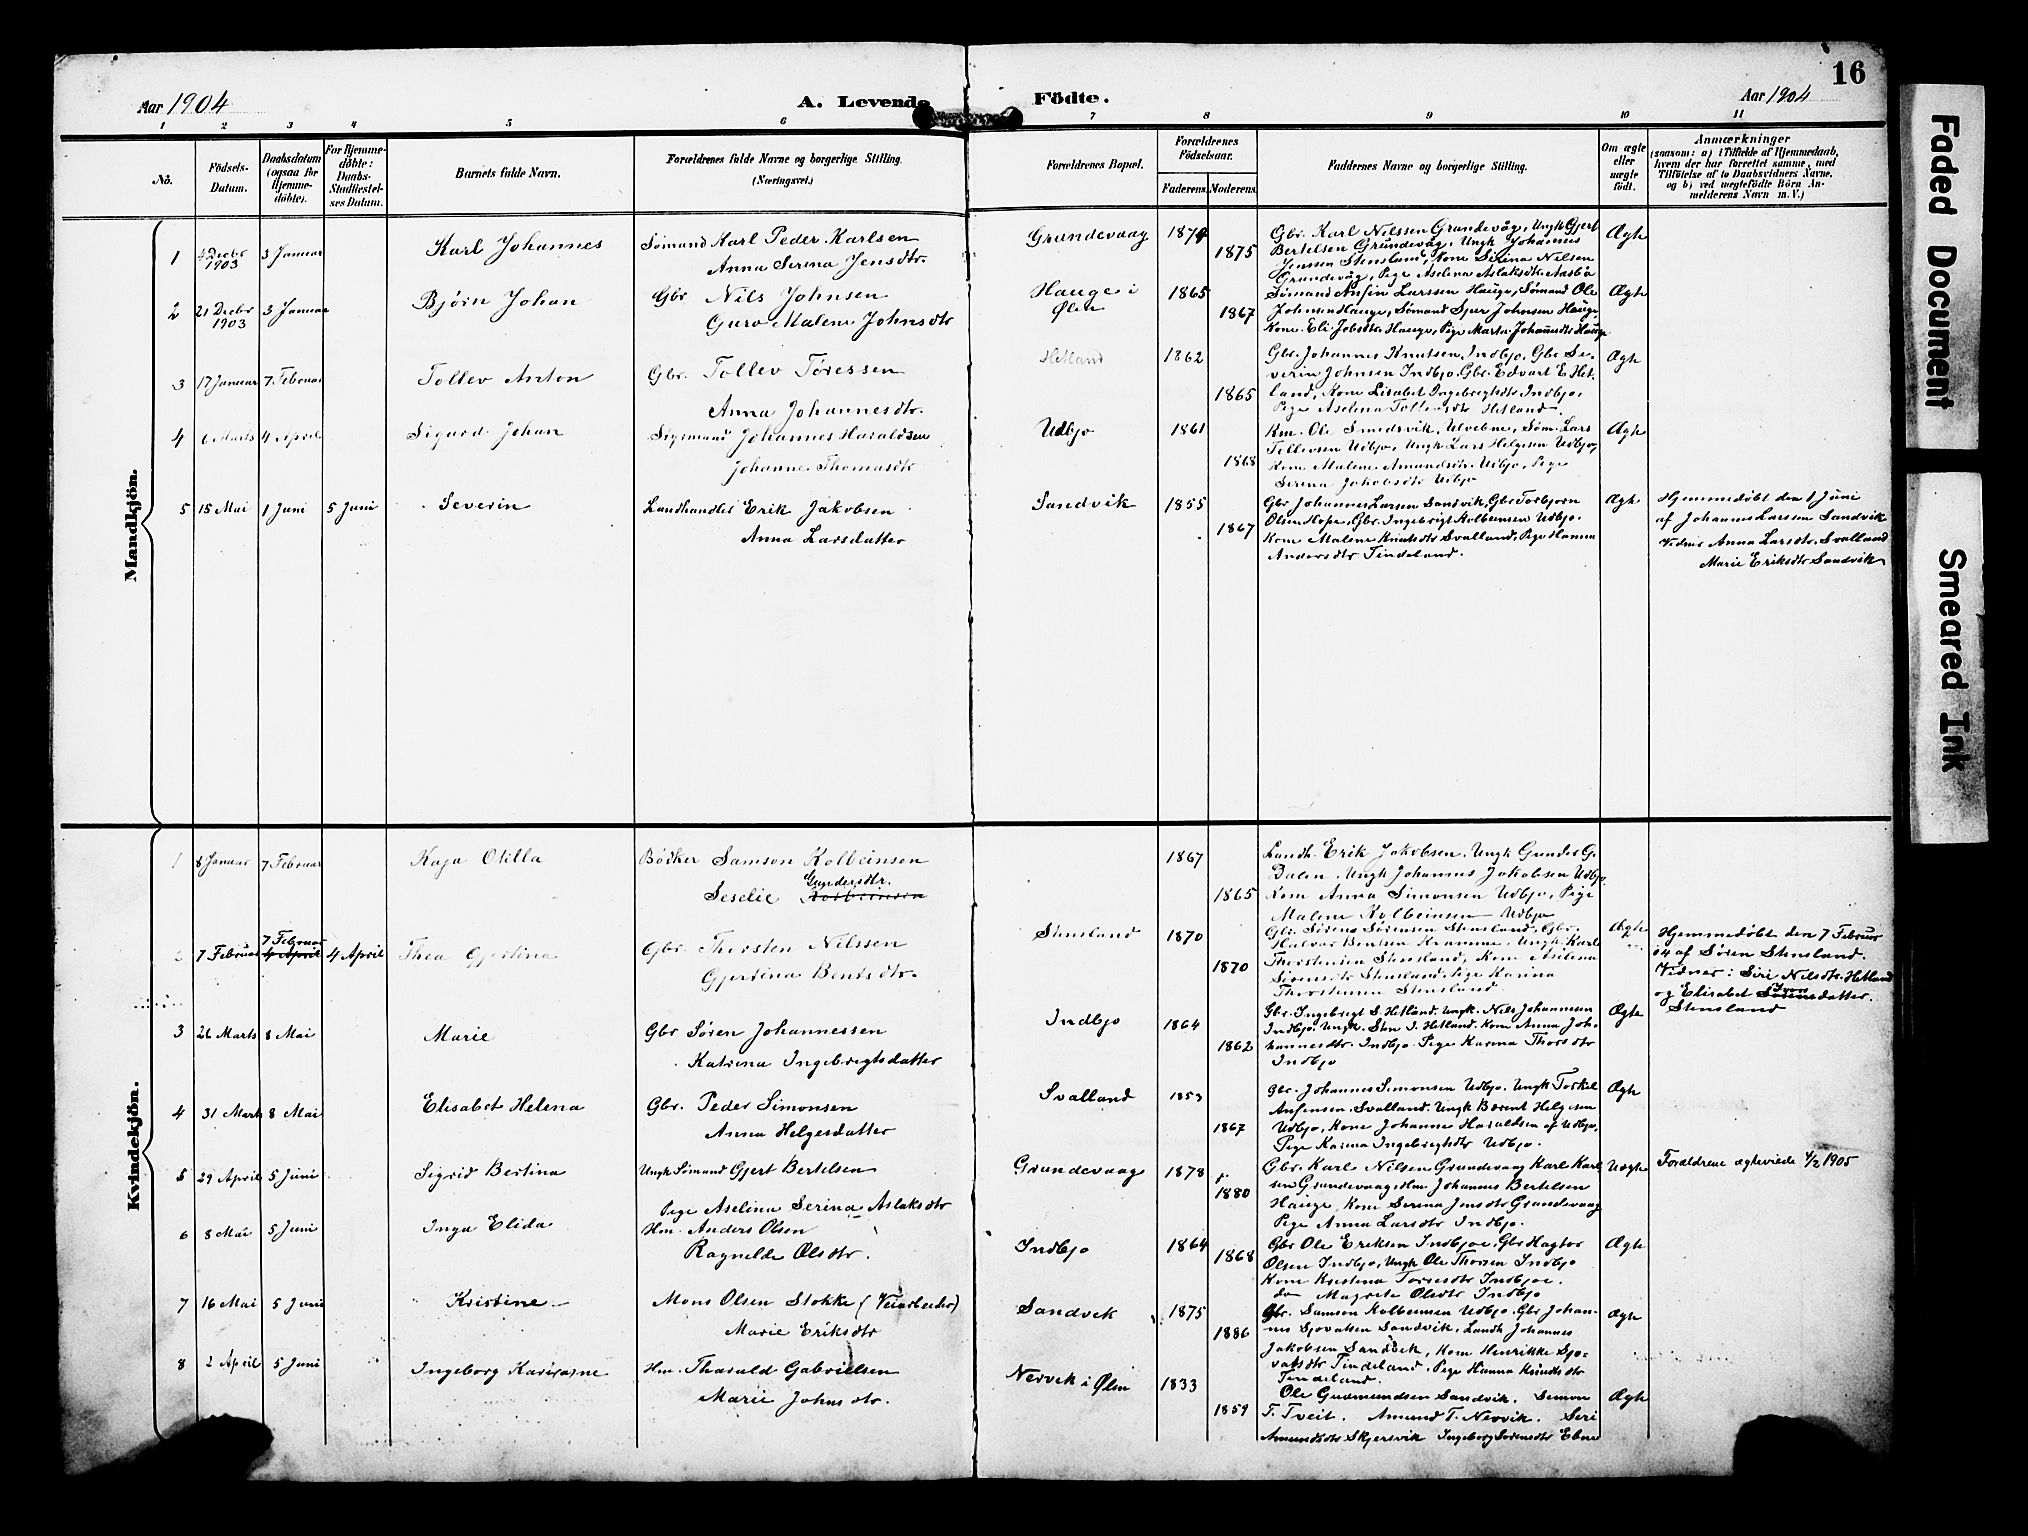 16
Aar 1904
A. Levende Födte.
Aar 1904
1 2 3 4 5 6 7 8 9 10 11
No.
Födsels-
Datum.
Daabsdatum
(ogsaa for
Hjemme-
döbte).
For Hjemme-
döbte:
Daabs-
Stadfæstel-
ses Datum.
Barnets fulde Navn.
Forældrenes fulde Navne og borgerlige Stilling.
(Næringsvei.)
Forældrenes Bopæl.
Forældrenes
Födselsaar.
Faderens.
Moderens.
Faddernes Navne og borgerlige Stilling.
Om ægte
eller
uægte
födt.
Anmærkninger
(saasom: a) i Tilfælde af Hjemmedaab,
hvem der har forrettet samme, med
Tilföielse af to Daabsvidners Navne,
og b) ved uægtefödte Börn An-
melderens Navn m.V.)
Mandkjön.
1 4 Decbr 1903 3 Januar Karl Johannes
Sømand Karl Peder Karlsen
Anna Serina Jensdtr.
Grundevaag 1874 1875
Gbr. Karl Nilssen Grundevåg, Ungk Gjert
Bertelsen Grundevåg, Ungk Johannes
Jenssen Stensland, Kone Serina Nilsen
Grundevåg, Pige Aselina Aslaksdtr Aasbø
Ægte
2 21 Decbr 1903 3 Januar Bjørn Johan
Gbr Nils Johnsen
Guro Malene Johnsdtr
Hauge i
Ølen
1865 1867
Sømand Ansin Larssen Hauge, Sømand Ole
Johnsen Hauge, Sømand Sjur Johnsen Hauge,
Kone Eli Jobsdtr Hauge, Pige Marta Johannsdtr Hauge
Ægte
3 17 Januar 7 Februar Tollev Anton
Gbr. Tollev Tøressen
Anna Johannesdtr.
Hetland 1862 1865
Gbr. Johannes Knutsen Indbjo, Gbr Se-
verin Johnsen Indbjo, Gbr. Edvart E Het-
land, Kone Lisabet Ingebregtsdtr Indbjo,
Pige Aselena Tollevsdtr Hetland.
Ægte
4 6 Marts 4 April Sigurd Johan
Styrmand Johannes Haraldsen
Johanne Thomasdtr
Udbjo 1861 1868
Km. Ole Smedsvik, Ulvebne, Søm. Lars
Tollevsen Udbjo, Ungk Lars Helgesen Udbjo,
Kone Malene Amundsdtr. Udbjo, Pige
Serina Jakobsdtr Udbjo
Ægte
5 15 Mai 1 Juni 5 Juni Severin
Landhandler Erik Jakobsen
Anna Larsdatter
Sandvik 1855 1867
Gbr Johannes Larsen Sandvik, Gbr Torbjørn
Olsen Hope, Gbr. Ingebrigt Kolbeinsen Udbjo.
Kone Malene Knutsdtr Svalland, Pige Hanna
Andersdtr Tindeland.
Ægte
Hjemmedøbt den 1 Juni
af Johannes Larssen Sandvik
Vidner Anna Larsdtr. Svalland
Marie Eriksdtr Sandvik
Kvindekjön.
1 8 Januar 7 Februar Kaja Otilla
Bødker Samson Kolbeinsen
Gundersdtr.
Seselie Kolbeinsen
1867 1865
Landh. Erik Jakobsen. Ungk Gunder G.
Dalen. Ungk Johannes Jakobsen Udbjo
Kone Anna Simonsen Udbjo, Pige
Malene Kolbeinsen Udbjo
2 7 Februar 7 Februar 4 April 4 April Thea Gjertina
Gbr. Thorsten Nilssen
Gjertina Bentsdtr.
Stensland 1870 1870
Gbr. Sørens Sørensen Stensland, Gbr.
Halvar Bentsen Kramme, Ungk. Karl
Thorstensen Stensland, Kone Aselina
Sørensdtr Stensland, Pige Karina
Thorstensen Stensland.
Ægte
Hjemmedøbt den 7 Februar
04 af Søren Stensland.
Vidner: Siri Nilsdtr. Hetland
og Elisabet Sørensdatter.
Stensland
3 26 Marts 8 Mai Marie
Gbr Søren Johannessen
Katrina Ingebregtsdatter
Indbjo 1864 1862
Gbr. Ingebregt S. Hetland. Ungk. Nils Johannessen
Indbjo, Ungk. Sten J. Hetland. Kone Anna Joh-
hannesdtr. Indbjo. Pige Karina Thorsdtr
Indbjo
Ægte
4 31 Marts 8 Mai Elisabet Helena
Gbr. Peder Simonsen
Anna Helgesdatter
Svalland 1853 1867
Gbr. Johannes Simonsen Udbjo. Ungk Torkel
Ansensen. Svalland. Ungk Berent Helgesen
Udbjo, Kone Johanne Haraldsen af Udbjo,
Pige Karina Ingebregtsdtr Udbjo.
Ægte
5 29 April 5 Juni Sigrid Bertina
Ungk Sømand Gjert Bertelsen
Pige Aselina Serina Aslaksdtr
Grundevaag 1878 1880
Gbr. Karl Nilsen Grundevaag Karl Karl-
sen Grundevaag, Hm Johannes Bertelsen
Hauge, Kone Serina Jensdtr Grundevaag
Pige Anna Larsdtr Indbjo.
Uægte
Forældrene ægteviede 4/2 1905
6 8 Mai 5 Juni Inga Elida
Hm. Anders Olsen
Ragnilde Olsdtr.
Indbjo 1864 1868
Gbr Ole Eriksen Indbjoe, Gbr Hagtor
Olsen Indbjo, Ungk Ole Thorsen Indbjo
Kone Kristina Torsesdtr Indbjoe.
do Magrete Olsdtr Indbjo
Ægte
7 16 Mai 5 Juni Kristine
Mons Olsen Stokke (Veiarbeider)
Marie Eriksdtr
Sandvik 1875 1886
Gbr. Samson Kolbeinsen Udbjo, Gbr Johan-
nes Sjovatsen Sandvik, Landh Johannes
Jakobsen Sandvik, Kone Henrikke Sjo-
vatsdtr Tindeland, Pige Hanna Knudsdtr
Tindeland.
Ægte
8 2 April 5 Juni Ingeborg Karianne
Hm. Tharald Gabrielsen
Marie Johnsdtr.
Nervik i Ølen 1833 1859
Ole Gudmundsen Sandvik. Semon
T. Tveit. Amund T. Nervik. Seri
Amundsdtr Skjersvik Ingeborg Sorensdtr Ebne
Ægte
Faded Document
Smeared Ink